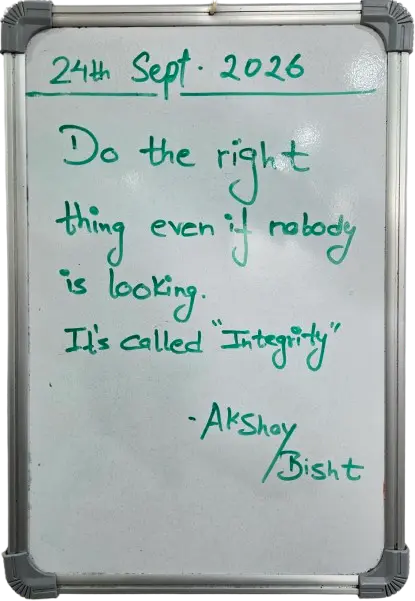 24th Sept. 2026
Do the right
thing even if nobody
is looking.
It's called "Integrity"
- Akshay
Bisht